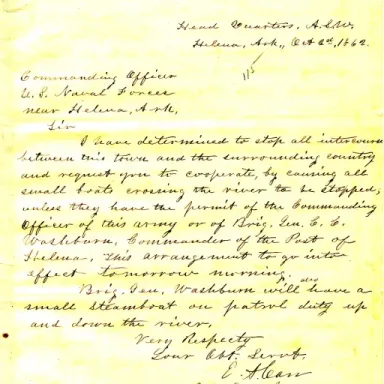 Head Quarters, A.S.W.
Helena, Ark., Oct 2d, 1862.
115
Commanding Officer
U.S. Naval Forces
near Helena, Ark,
Sir
I have determined to stop all intercourse
between this town and the surrounding country
and request you to cooperate, by causing all
small boats crossing the river to be stopped,
unless they have the permit of the Commanding
Officer of this army or of Brig. Gen. C. C.
Washburn, Commander of the Post of
Helena. This arrangement to go into
effect tomorrow morning.
Brig. Gen. Washburn will also have a
small steamboat on patrol duty up
and down the river.
Very Respecty
Your Obt. Servt.
E. A. Carr